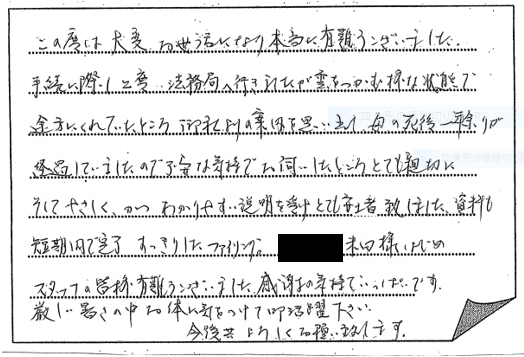 この度は大変お世話になり本当に有難うございました。
手続に際し二度、法務局へ行きましたが雲をつかむ様な状態で
途方にくれていたところ御社よりの案内を思い出し、母の死後一年余りが
経過していましたので不安な気持でお伺いしたところとても親切に
そしてやさしく、かつわかりやすい説明を受けとても安堵致しました。資料も
短期間で完了 すっきりしたファイリング。 米田様はじめ
スタッフの皆様有難うございました。感謝の気持でいっぱいです。
厳しい暑さの中お体に気をつけて御活躍下さい
今後共よろしくお願い致します。